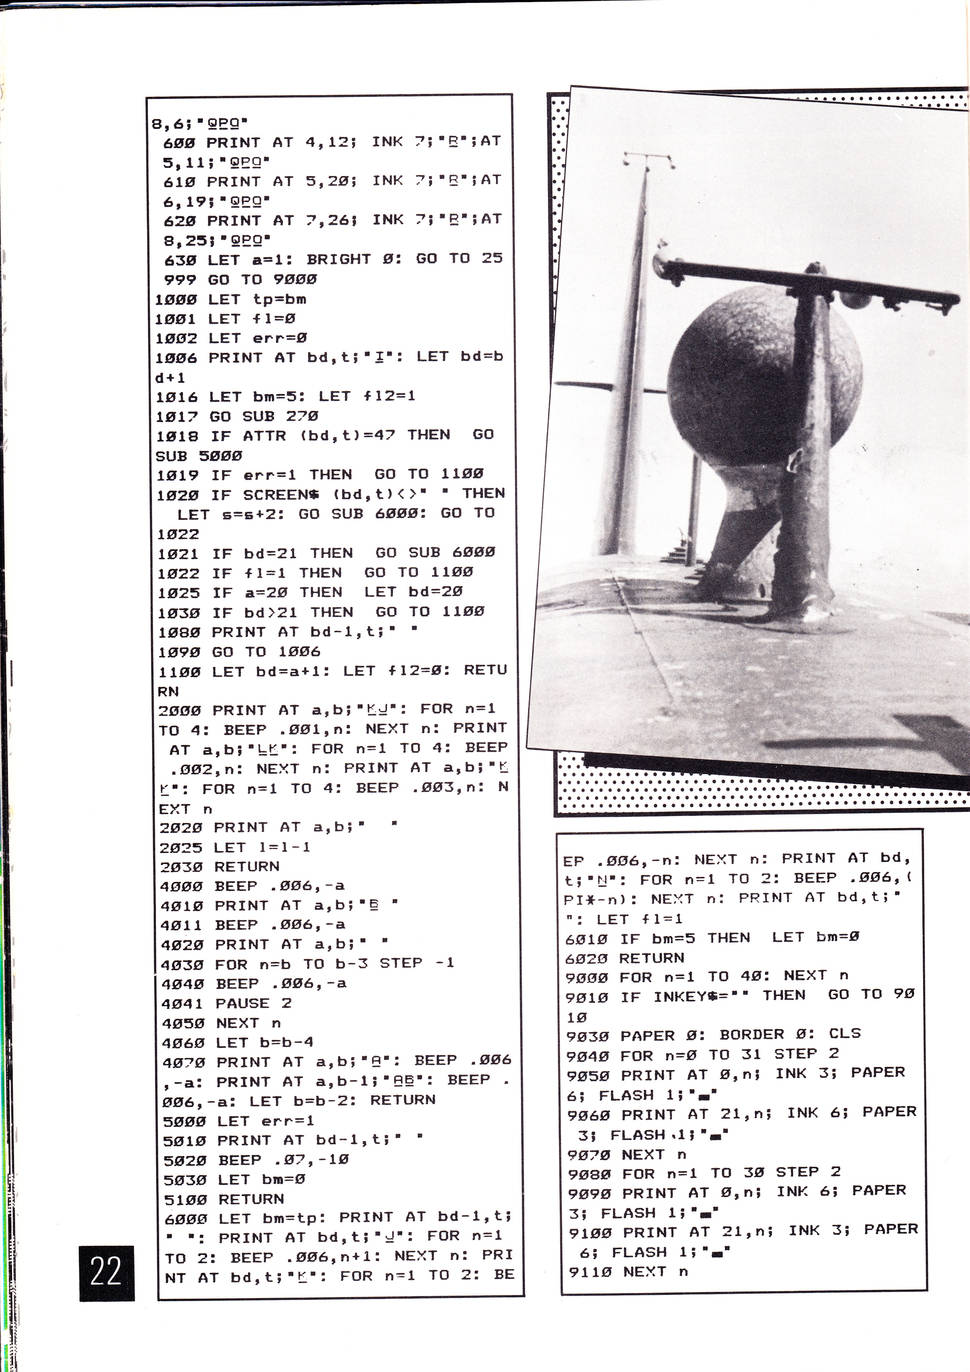 8,6;"QPQ"
600 PRINT AT 4,12; INK 7;"R";AT
5,11;"QPQ"
610 PRINT AT 5,20; INK 7;"R";AT
6,19;"QPQ"
620 PRINT AT 7,26; INK 7;"R";AT
8,25;"QPQ"
630 LET a=1: BRIGHT 0: GO TO 25
999 GO TO 9000
1000 LET tp=bm
1001 LET fl=0
1002 LET err=0
1006 PRINT AT bd,t;"I": LET bd=b
d+1
1016 LET bm=5: LET fl2=1
1017 GO SUB 270
1018 IF ATTR (bd,t)=47 THEN  GO
SUB 5000
1019 IF err=1 THEN  GO TO 1100
1020 IF SCREEN$ (bd,t)<>" " THEN
LET s=s+2: GO SUB 6000: GO TO
1022
1021 IF bd=21 THEN  GO SUB 6000
1022 IF fl=1 THEN  GO TO 1100
1025 IF a=20 THEN  LET bd=20
1030 IF bd>21 THEN  GO TO 1100
1080 PRINT AT bd-1,t;" "
1090 GO TO 1006
1100 LET bd=a+1: LET fl2=0: RETU
RN
2000 PRINT AT a,b;"KJ": FOR n=1
TO 4: BEEP .001,n: NEXT n: PRINT
AT a,b;"LK": FOR n=1 TO 4: BEEP
.002,n: NEXT n: PRINT AT a,b;"K
K": FOR n=1 TO 4: BEEP .003,n: N
EXT n
2020 PRINT AT a,b;"  "
2025 LET l=l-1
2030 RETURN
4000 BEEP .006,-a
4010 PRINT AT a,b;"B "
4011 BEEP .006,-a
4020 PRINT AT a,b;" "
4030 FOR n=b TO b-3 STEP -1
4040 BEEP .006,-a
4041 PAUSE 2
4050 NEXT n
4060 LET b=b-4
4070 PRINT AT a,b;"A": BEEP .006
,-a: PRINT AT a,b-1;"AB": BEEP .
006,-a: LET b=b-2: RETURN
5000 LET err=1
5010 PRINT AT bd-1,t;" "
5020 BEEP .07,-10
5030 LET bm=0
5100 RETURN
6000 LET bm=tp: PRINT AT bd-1,t;
" ": PRINT AT bd,t;"J": FOR n=1
TO 2: BEEP .006,n+1: NEXT n: PRI
NT AT bd,t;"K": FOR n=1 TO 2: BE
EP .006,-n: NEXT n: PRINT AT bd,
t;"N": FOR n=1 TO 2: BEEP .006,(
PI*-n): NEXT n: PRINT AT bd,t;"
": LET fl=1
6010 IF bm=5 THEN  LET bm=0
6020 RETURN
9000 FOR n=1 TO 40: NEXT n
9010 IF INKEY$="" THEN  GO TO 90
10
9030 PAPER 0: BORDER 0: CLS
9040 FOR n=0 TO 31 STEP 2
9050 PRINT AT 0,n; INK 3; PAPER
6; FLASH 1;"▄"
9060 PRINT AT 21,n; INK 6; PAPER
3; FLASH 1;"▄"
9070 NEXT n
9080 FOR n=1 TO 30 STEP 2
9090 PRINT AT 0,n; INK 6; PAPER
3; FLASH 1;"▄"
9100 PRINT AT 21,n; INK 3; PAPER
6; FLASH 1;"▄"
9110 NEXT n
22